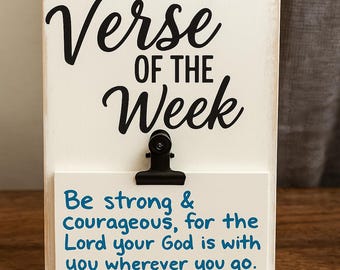 Verse
OF THE
Week
Be strong &
courageous, for the
Lord your God is with
you wherever you go.